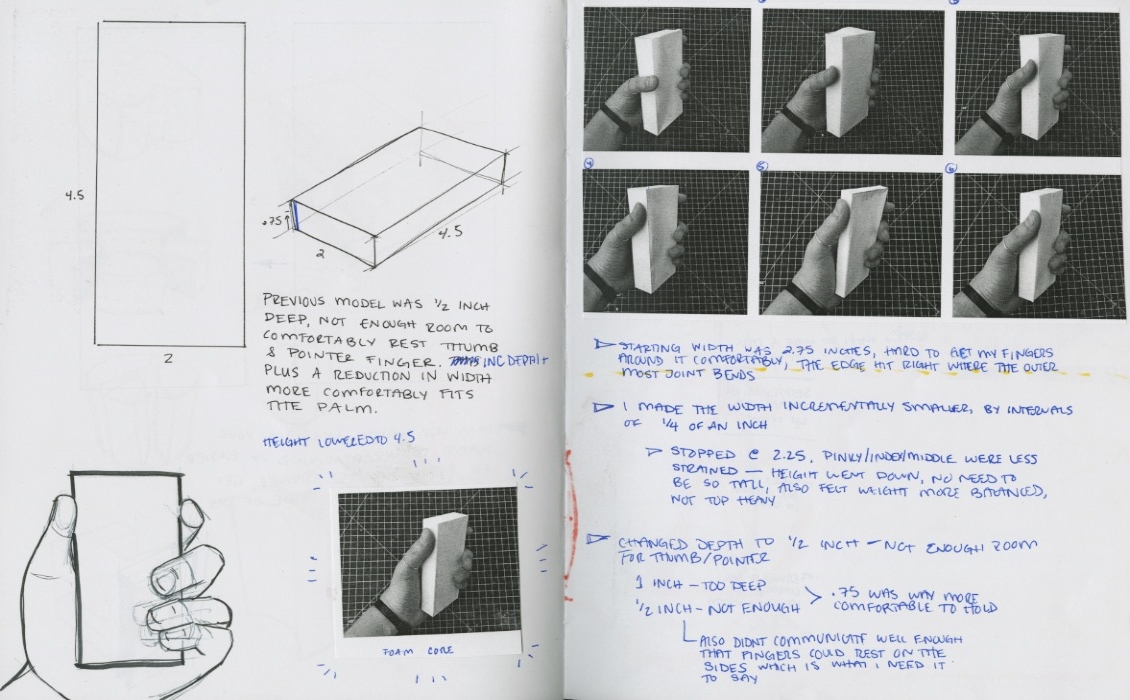 4.5
2
.75
2
4.5
PREVIOUS MODEL WAS 1/2 INCH
DEEP, NOT ENOUGH ROOM TO
COMFORTABLY REST THUMB
& POINTER FINGER. INC DEPTH
PLUS A REDUCTION IN WIDTH
MORE COMFORTABLY FITS
THE PALM.
HEIGHT LOWERED TO 4.5
FOAM CORE
4
5
6
STARTING WIDTH WAS 2.75 INCHES, HARD TO GET MY FINGERS
AROUND IT COMFORTABLY, THE EDGE HIT RIGHT WHERE THE OUTER
MOST JOINT BENDS
I MADE THE WIDTH INCREMENTALLY SMALLER, BY INTERVALS
OF 1/4 OF AN INCH
STOPPED @ 2.25, PINKY/INDEX/MIDDLE WERE LESS
STRAINED — HEIGHT WENT DOWN, NO NEED TO
BE SO TALL, ALSO FELT WEIGHT MORE BALANCED,
NOT TOP HEAVY
CHANGED DEPTH TO 1/2 INCH — NOT ENOUGH ROOM
FOR THUMB/POINTER
1 INCH — TOO DEEP
1/2 INCH - NOT ENOUGH > .75 WAS WAY MORE
COMFORTABLE TO HOLD
ALSO DIDNT COMMUNICATE WELL ENOUGH
THAT FINGERS COULD REST ON THE
SIDES WHICH IS WHAT I NEED IT
TO SAY